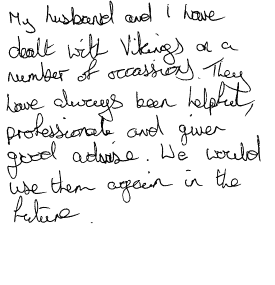 My husband and I have
dealt with Vikings on a
number of occassions. They
have always been helpful,
professionals and given
good advise. We would
use them again in the
future.